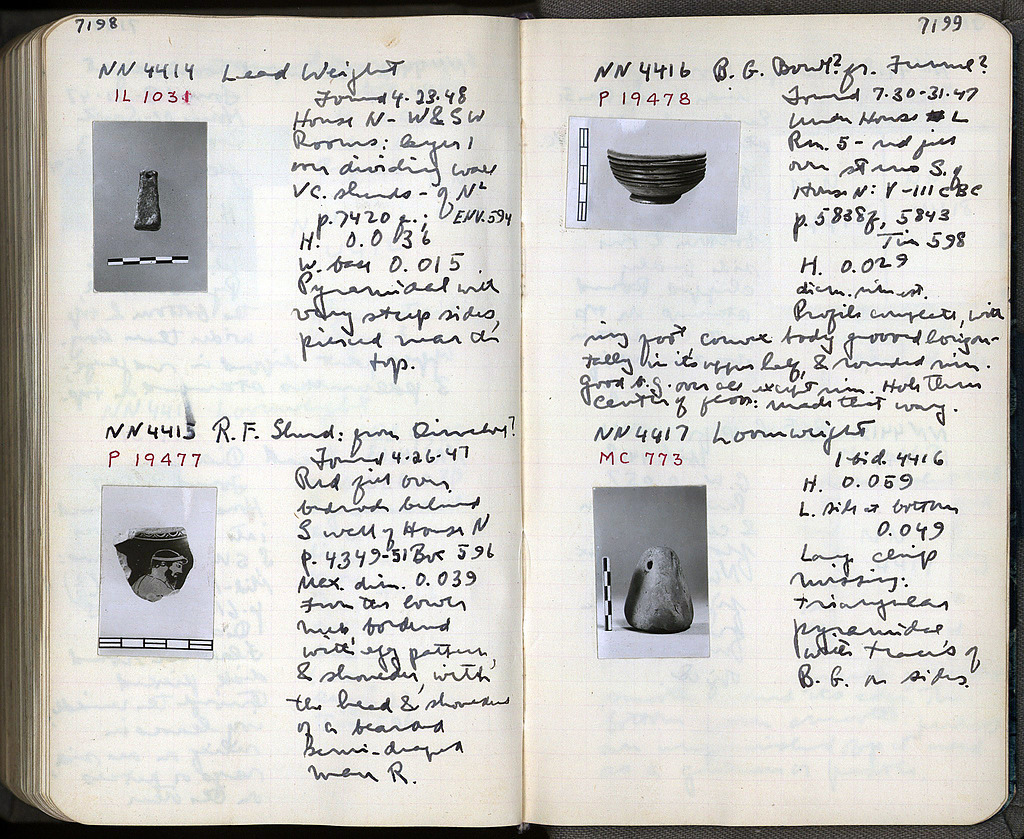 7198
NN 4414 Lead Weight
IL 1031
Found 4.23.48
House N - W & SW
Rooms: layer 1
over dividing wall
VC. sherds -
p. 7420 ; ENV. 594
H. 0.036
W. base 0.015
Pyramidal with
very steep sides,
pierced near the
top.
NN 4415 R.F. Sherd: from
P 19477
Found 4.26.47
Red fill over
bedrock behind
S wall of House N
p. 4349-51 Box 596
Max. dim. 0.039
From the lower
neck, bordered
with egg pattern,
& shoulder, with
the head & shoulder
of a bearded
semi-draped
man R.
7199
NN 4416 B.G. Bowl? fr. Funnel?
P 19478
Found 7.30-31.47
Under House L
Rm. 5 - red fill
over S. of
House N: V-III C BC
p. 5838f, 5843
Tin 598
H. 0.029
diam. rim est.
Profile complete, with
ring foot convex body grooved horizon-
tally in its upper half, & rounded rim.
Good b.g. over all except rim. Hole thru
center of floor: made that way.
NN 4417 Loomweight
MC 773
Ibid. 4416
H. 0.059
L. side at bottom
0.049
Large chip
missing.
Triangular
pyramidal,
with traces of
B.G. on sides.